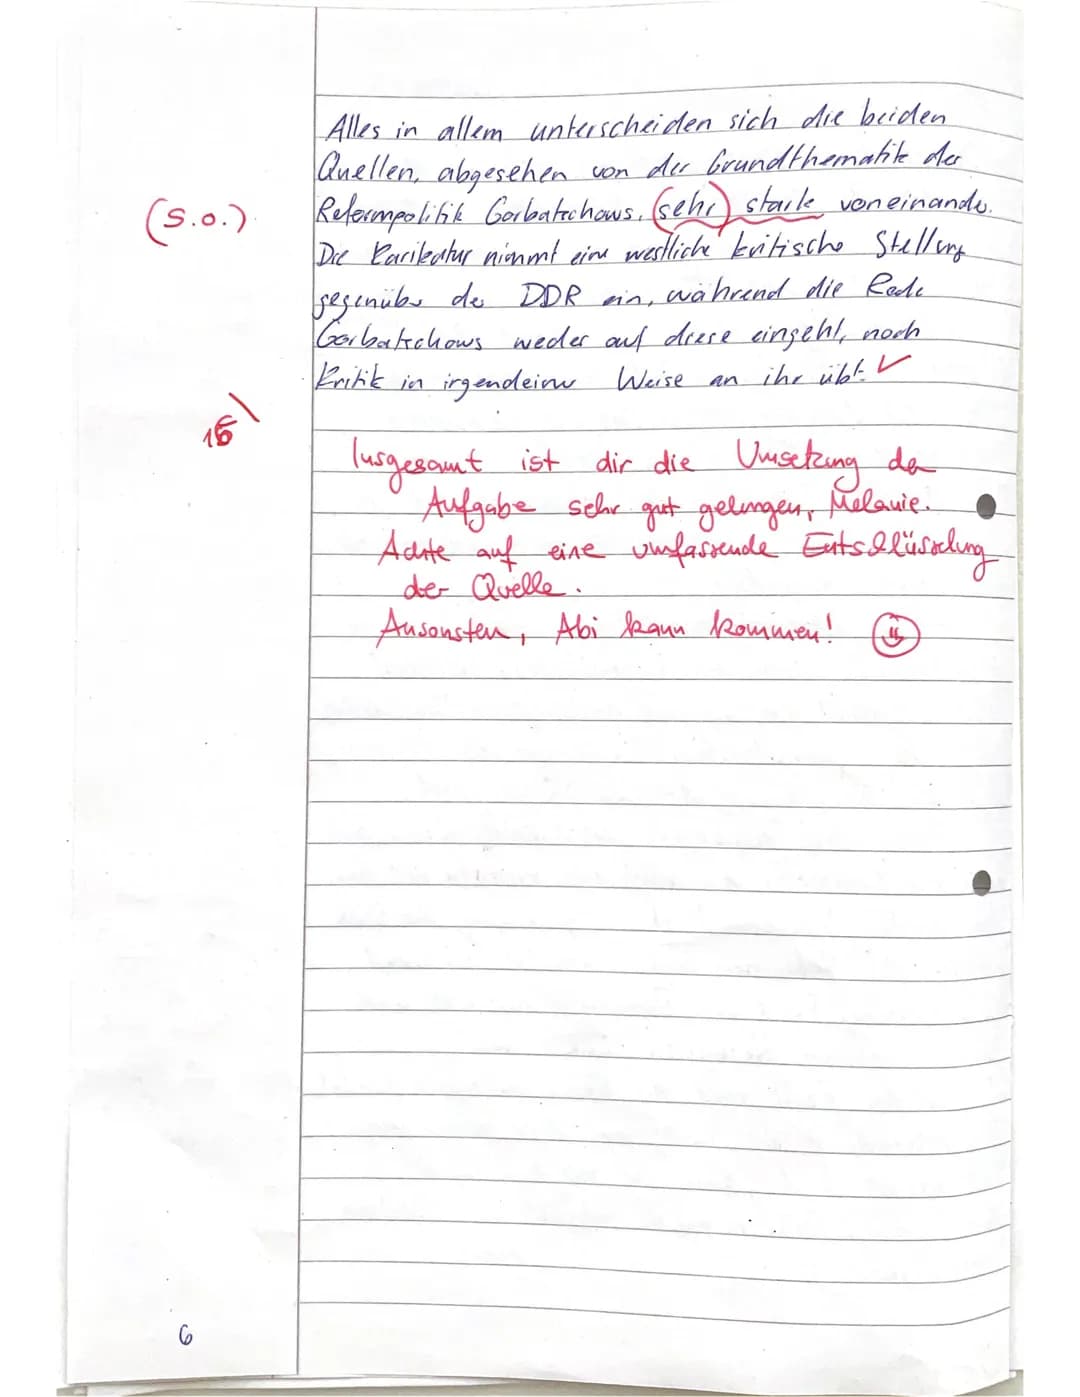 Alles in allem unterscheiden sich die beiden
Quellen, abgesehen von der Grundthematik der
(s.o.) Reformpolitik Gorbatschows, (sehr) stark voneinander.
Die Karikatur nimmt eine westliche kritische Stellung
gegenüber der DDR ein, während die Rede
Gorbatschows weder auf diese eingeht, noch
Kritik in irgendeiner Weise an ihr übt. ✓
Insgesamt ist dir die Umsetzung der
Aufgabe sehr gut gelungen, Melanie.
Achte auf eine umfassende Entschlüsselung
der Quelle.
Ansonsten, Abi kann kommen!
6